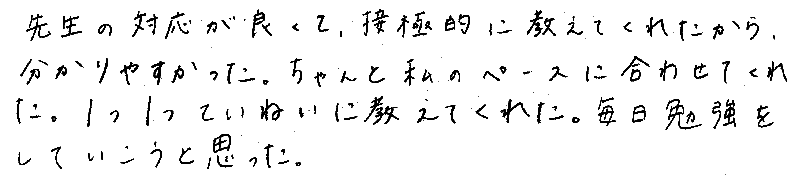 先生の対応が良くて、接極的に教えてくれたから、
分かりやすかった。ちゃんと私のペースに合わせてくれ
た。1つ1つていねいに教えてくれた。毎日勉強を
していこうと思った。